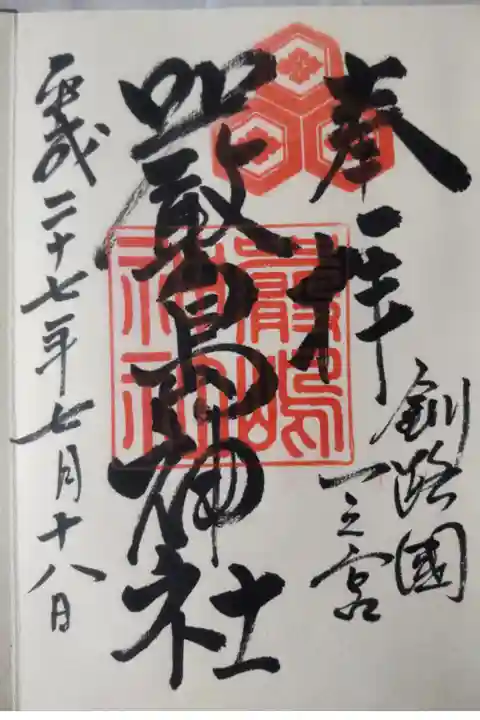 奉拝
釧路國
一之宮
嚴島神社
嚴嶋
神社
平成二十七年七月十八日